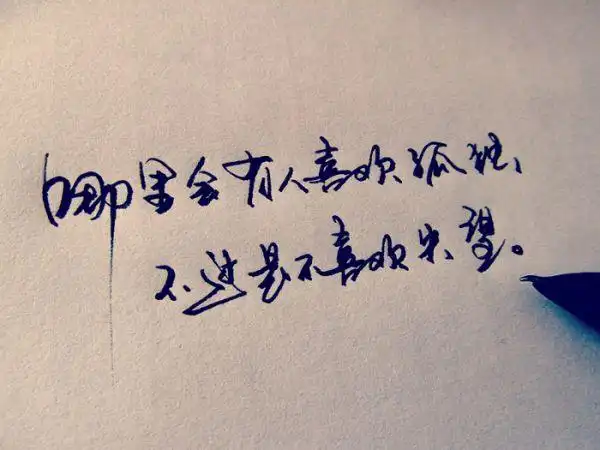 哪里会有人喜欢孤独、
不过是不喜欢失望。